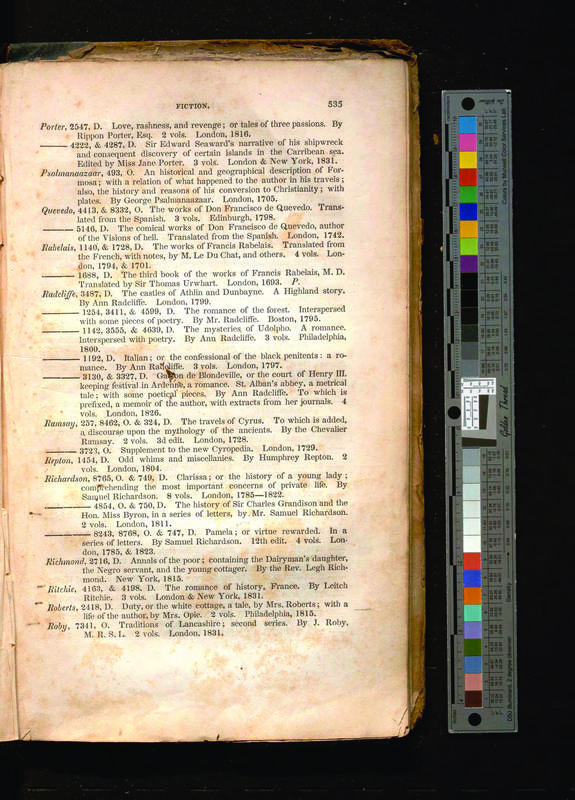 FICTION. 535
Porter, 2547, D. Love, rashness, and revenge; or tales of three passions. By
Rippon Porter, Esq. 2 vols. London, 1816.
——— 4222, & 4287, D. Sir Edward Seaward's narrative of his shipwreck
and consequent discovery of certain islands in the Carribean sea.
Edited by Miss Jane Porter. 3 vols. London & New York, 1831.
Psalmanaazaar, 493, O. An historical and geographical description of For-
mosa; with a relation of what happened to the author in his travels;
also, the history and reasons of his conversion to Christianity; with
plates. By George Psalmanaazaar. London, 1705.
Quevedo, 4413, & 8332, O. The works of Don Francisco de Quevedo. Trans-
lated from the Spanish. 3 vols. Edinburgh, 1798.
——— 5146, D. The comical works of Don Francisco de Quevedo, author
of the Visions of hell. Translated from the Spanish. London, 1742.
Rabelais, 1140, & 1728, D. The works of Francis Rabelais. Translated from
the French, with notes, by M. Le Du Chat, and others. 4 vols. Lon-
don, 1794, & 1701.
——— 1688, D. The third book of the works of Francis Rabelais, M. D.
Translated by Sir Thomas Urwhart. London, 1693. P.
Radcliffe, 3487, D. The castles of Athlin and Dunbayne. A Highland story.
By Ann Radcliffe. London, 1799.
——— 1254, 3411, & 4599, D. The romance of the forest. Interspersed
with some pieces of poetry. By Mr. Radcliffe. Boston, 1795.
——— 1142, 3555, & 4639, D. The mysteries of Udolpho. A romance.
Interspersed with poetry. By Ann Radcliffe. 3 vols. Philadelphia,
1800.
——— 1192, D. Italian; or the confessional of the black penitents: a ro-
mance. By Ann Radcliffe. 3 vols. London, 1797.
——— 3130, & 3327, D. Gaston de Blondeville, or the court of Henry III.
keeping festival in Ardenne, a romance. St. Alban's abbey, a metrical
tale; with some poetical pieces. By Ann Radcliffe. To which is
prefixed, a memoir of the author, with extracts from her journals. 4
vols. London, 1826.
Ramsay, 257, 8462, O. & 324, D. The travels of Cyrus. To which is added,
a discourse upon the mythology of the ancients. By the Chevalier
Ramsay. 2 vols. 3d edit. London, 1728.
——— 3723, O. Supplement to the new Cyropedia. London, 1729.
Repton, 1454, D. Odd whims and miscellanies. By Humphrey Repton. 2
vols. London, 1804.
Richardson, 8765, O. & 749, D. Clarissa; or the history of a young lady;
comprehending the most important concerns of private life. By
Samuel Richardson. 8 vols. London, 1785—1822.
——— 4854, O. & 750, D. The history of Sir Charles Grandison and the
Hon. Miss Byron, in a series of letters, by Mr. Samuel Richardson.
2 vols. London, 1811.
——— 8243, 8768, O. & 747, D. Pamela; or virtue rewarded. In a
series of letters. By Samuel Richardson. 12th edit. 4 vols. Lon-
don, 1785, & 1823.
Richmond, 2716, D. Annals of the poor; containing the Dairyman's daughter,
the Negro servant, and the young cottager. By the Rev. Legh Rich-
mond. New York, 1815.
Ritchie, 4163, & 4198, D. The romance of history, France. By Leitch
Ritchie. 3 vols. London & New York, 1831.
Roberts, 2418, D. Duty, or the white cottage, a tale, by Mrs. Roberts; with a
life of the author, by Mrs. Opie. 2 vols. Philadelphia, 1815.
Roby, 7341, O. Traditions of Lancashire; second series. By J. Roby,
M. R. S. L. 2 vols. London, 1831.
Golden Thread
Density